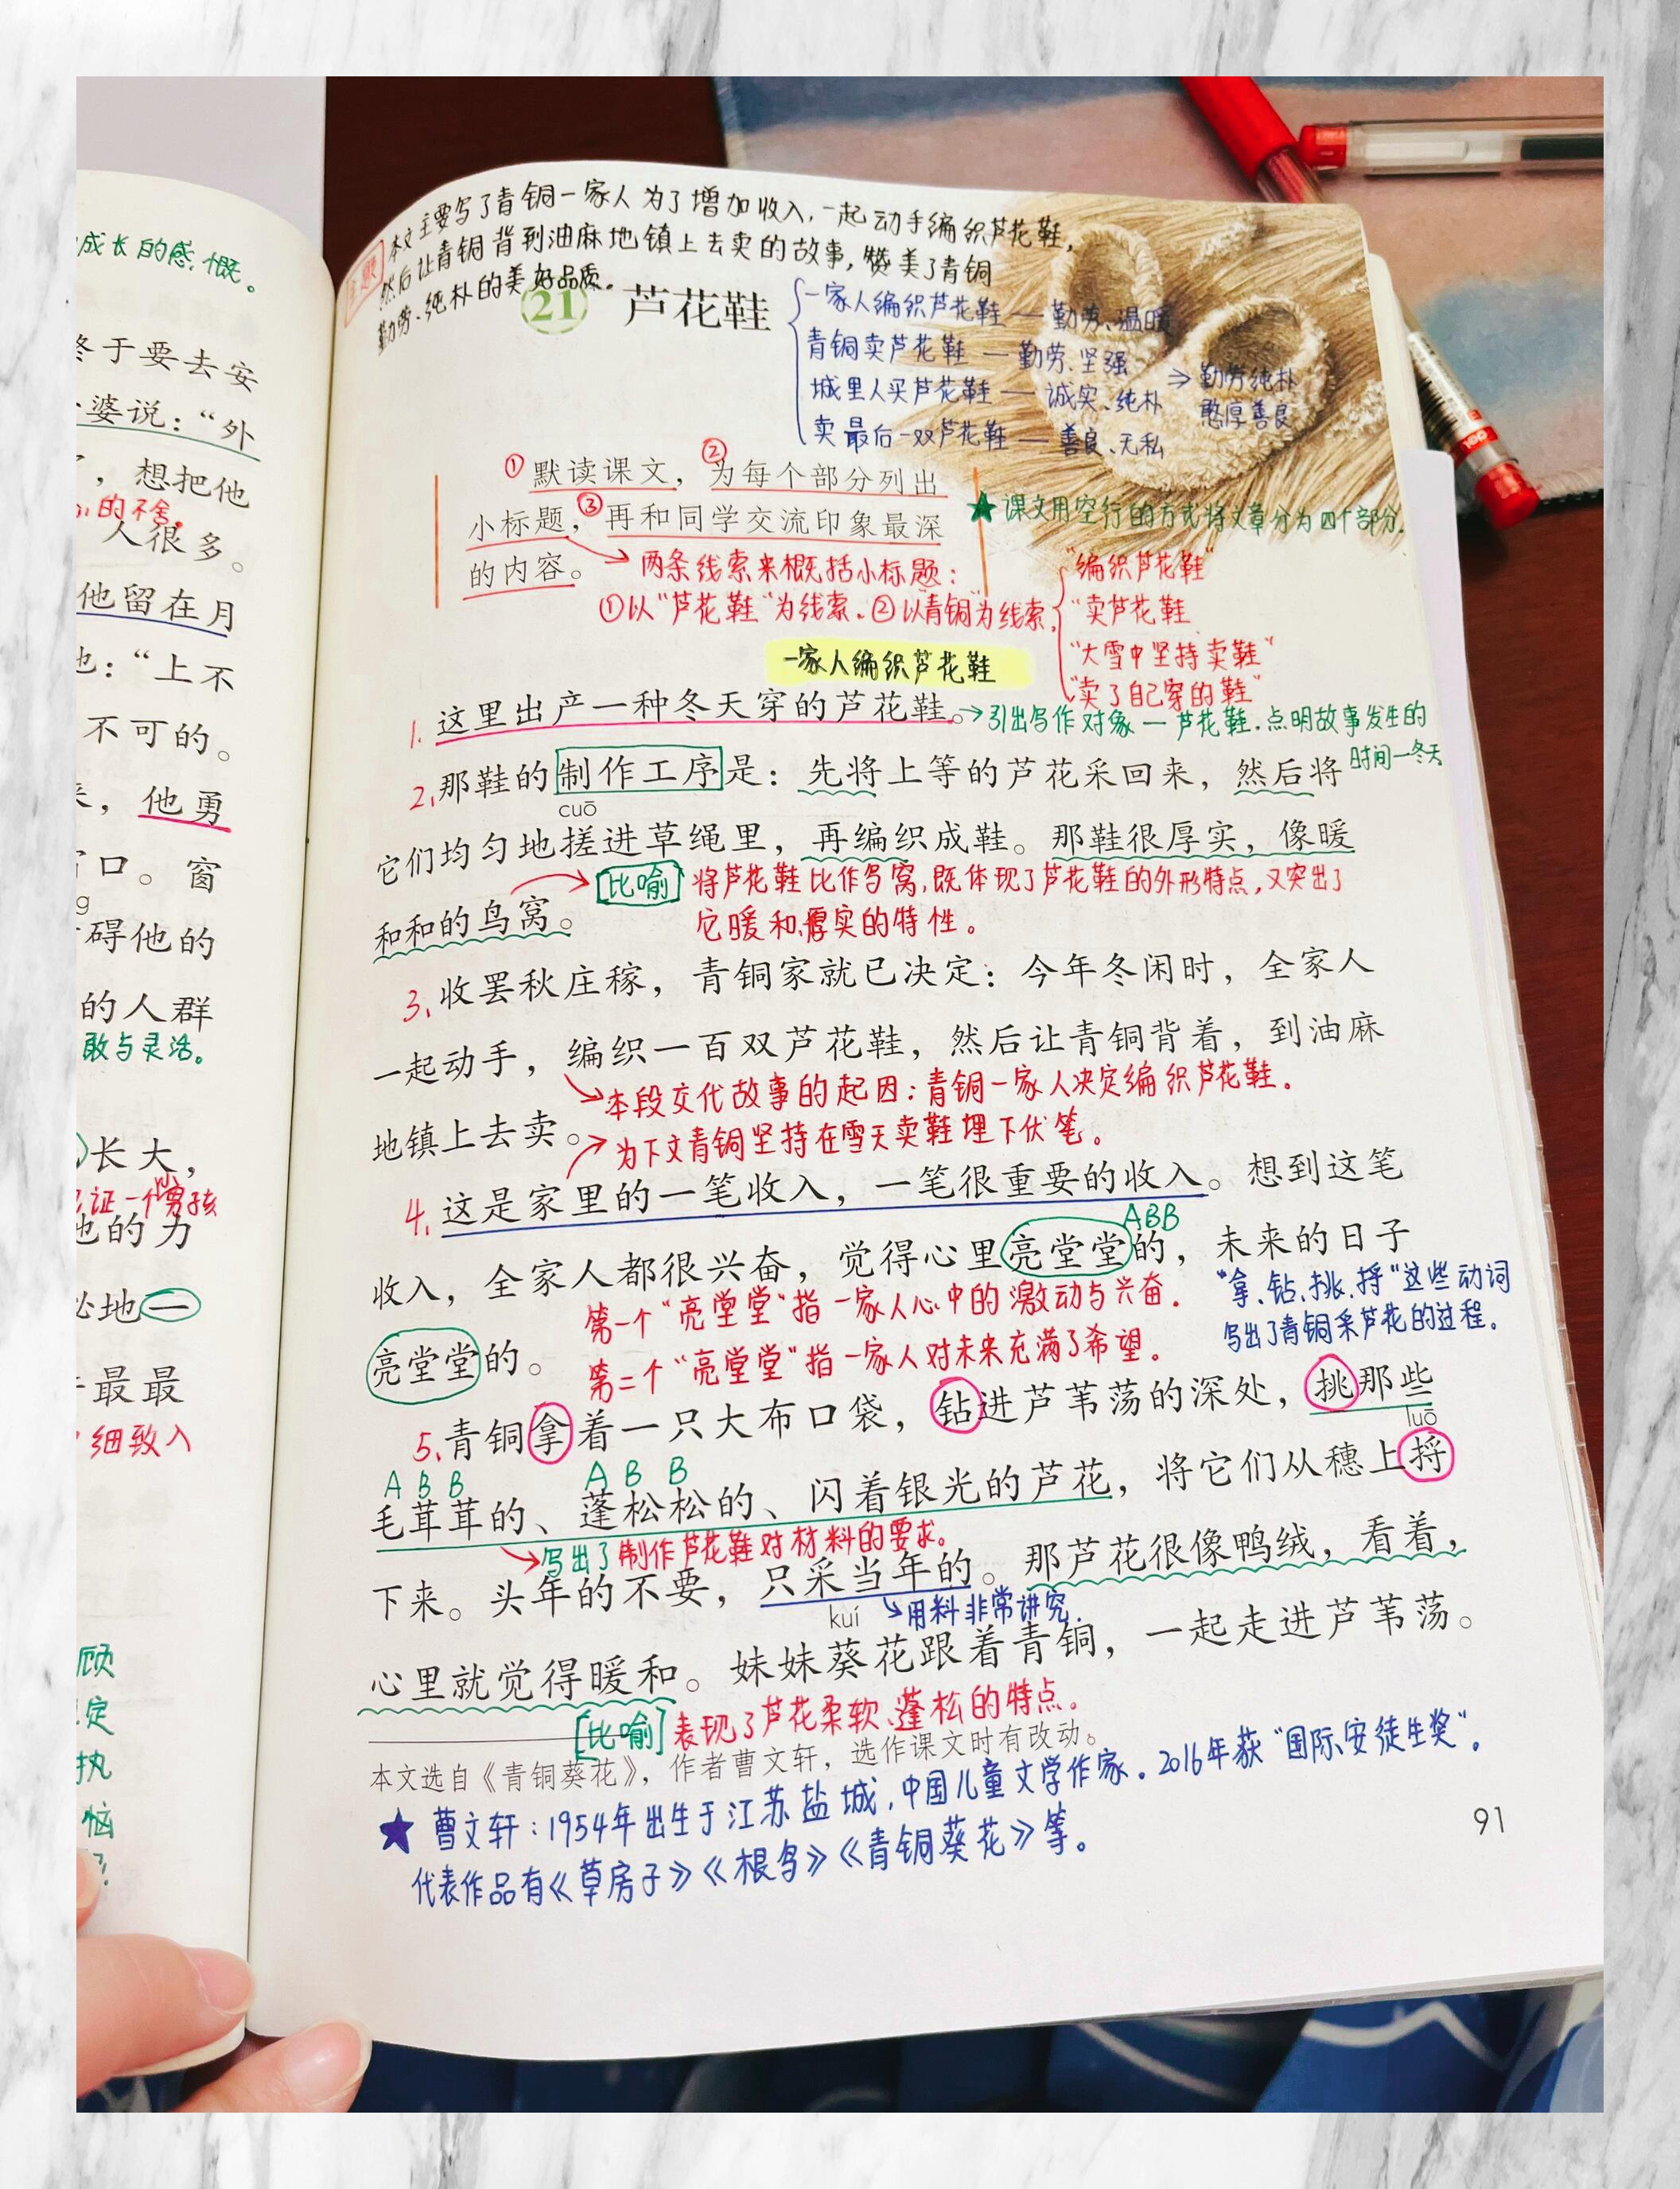 成长的感慨。
终于要去安
婆说：“外
，想把他
的不舍。
人很多。
他留在月
他：“上不
不可的。
来，他勇
窗口。窗
g
碍他的
的人群
敢与灵活。
长大，
证一个男孩
他的力
必地一
最最
细致入
顾
定
执
恼
主题
本文主要写了青铜一家人为了增加收入，一起动手编织芦花鞋，
然后让青铜背到油麻地镇上去卖的故事，赞美了青铜
勤劳、纯朴的美好品质。
21 芦花鞋
一家人编织芦花鞋—勤劳、温暖
青铜卖芦花鞋—勤劳、坚强
城里人买芦花鞋—诚实、纯朴
卖最后一双芦花鞋—善良、无私
⇒勤劳纯朴
憨厚善良
①默读课文，②为每个部分列出
小标题，③再和同学交流印象最深
的内容。
★课文用空行的方式将文章分为四个部分。
→两条线索来概括小标题：
①以“芦花鞋”为线索。②以青铜”为线索，
“编织芦花鞋”
“卖芦花鞋
“大雪中坚持卖鞋”
“卖了自己穿的鞋”
一家人编织芦花鞋
1.这里出产一种冬天穿的芦花鞋。
→引出写作对象—芦花鞋。点明故事发生的
时间—冬天
2.那鞋的制作工序是：先将上等的芦花采回来，然后将
cuō
它们均匀地搓进草绳里，再编织成鞋。那鞋很厚实，像暖
和和的鸟窝。
比喻 将芦花鞋比作鸟窝，既体现了芦花鞋的外形特点，又突出了
它暖和、厚实的特性。
3.收罢秋庄稼，青铜家就已决定：今年冬闲时，全家人
一起动手，编织一百双芦花鞋，然后让青铜背着，到油麻
地镇上去卖。
→本段交代故事的起因：青铜一家人决定编织芦花鞋。
→为下文青铜坚持在雪天卖鞋埋下伏笔。
4.这是家里的一笔收入，一笔很重要的收入。想到这笔
ABB
收入，全家人都很兴奋，觉得心里亮堂堂的，未来的日子
亮堂堂的。
第一个“亮堂堂”指一家人心中的激动与兴奋。
第二个“亮堂堂”指一家人对未来充满了希望。
“拿、钻、挑、捋”这些动词
写出了青铜采芦花的过程。
5.青铜拿着一只大布口袋，钻进芦苇荡的深处，挑那些
luō
ABB ABB
毛茸茸的、蓬松松的、闪着银光的芦花，将它们从穗上捋
→写出了制作芦花鞋对材料的要求。
下来。头年的不要，只采当年的。那芦花很像鸭绒，看着，
kuí
→用料非常讲究.
心里就觉得暖和。妹妹葵花跟着青铜，一起走进芦苇荡。
[比喻]表现了芦花柔软、蓬松的特点。
本文选自《青铜葵花》，作者曹文轩，选作课文时有改动。
★曹文轩：1954年出生于江苏盐城，中国儿童文学作家。2016年获“国际安徒生奖”。
代表作品有《草房子》《根鸟》《青铜葵花》等。
91